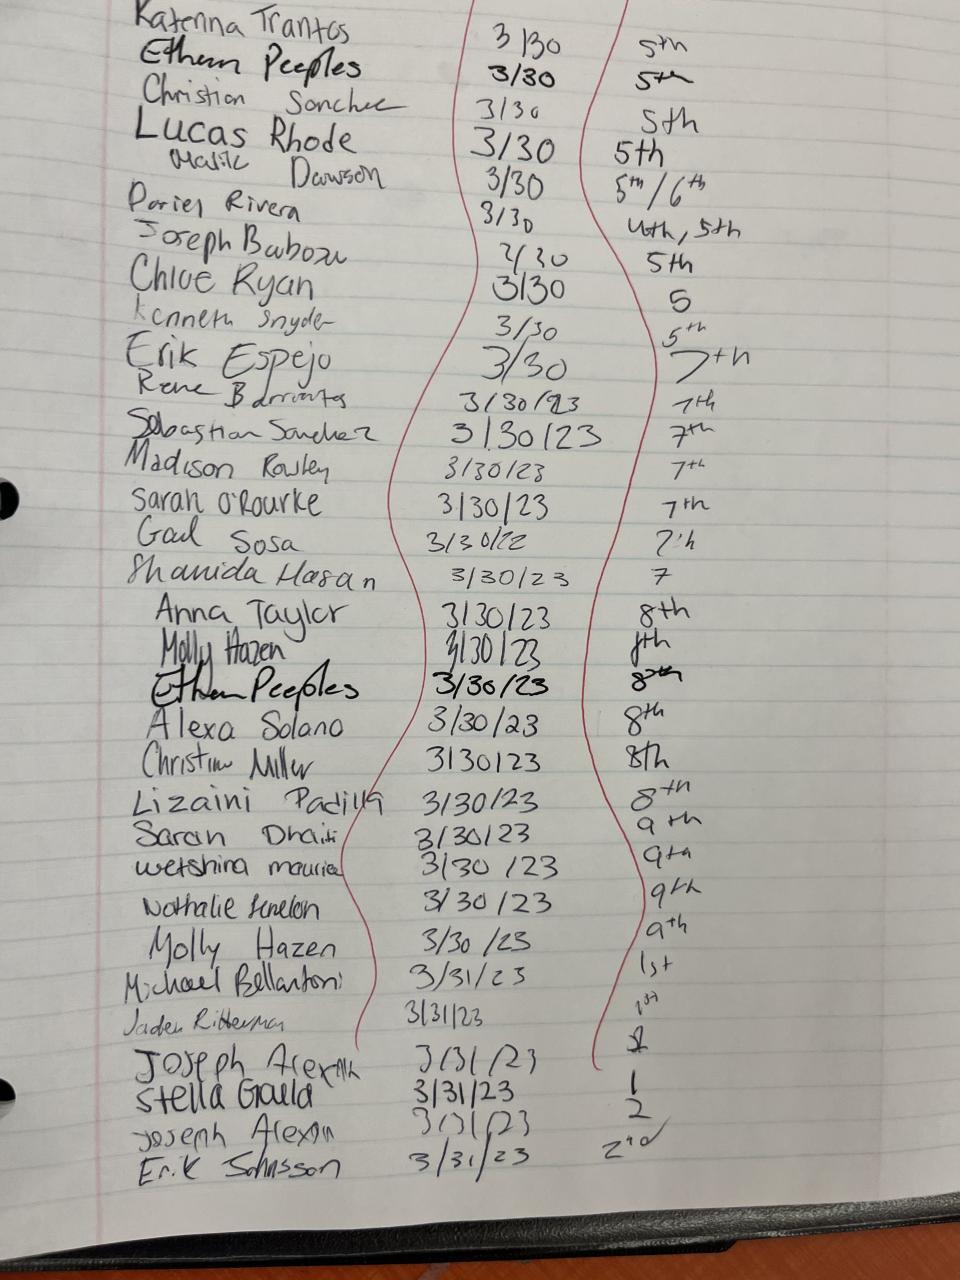 Katerina Trantos 3/30 5th
Ethan Peeples 3/30 5th
Christian Sanchez 3/30 5th
Lucas Rhode 3/30 5th
Malik Dawson 3/30 5th/6th
Rivera 3/30 4th, 5th
Joseph 3/30 5th
Chloe Ryan 3/30 5
Kenneth Snyder 3/30 5th
Erik Espejo 3/30 7th
Rene Barrientos 3/30/23 7th
Sebastian Sanchez 3/30/23 7th
Madison Rowley 3/30/23 7th
Sarah O'Rourke 3/30/23 7th
Sosa 3/30/22 7th
Shanida Hasan 3/30/23 7
Anna Taylor 3/30/23 8th
Molly Hazen 3/30/23 8th
Ethan Peeples 3/30/23 8th
Alexa Solano 3/30/23 8th
Miller 3/30/23 8th
Lizaini Padilla 3/30/23 8th
3/30/23 9th
3/30/23 9th
Nathalie 3/30/23 9th
Molly Hazen 3/30/23 9th
Michael Bellantoni 3/31/23 1st
Jaden Ritterman 3/31/23 1st
Joseph 3/31/23 1
Stella 3/31/23 1
Joseph 3/31/23 2
Erik 3/31/23 2nd